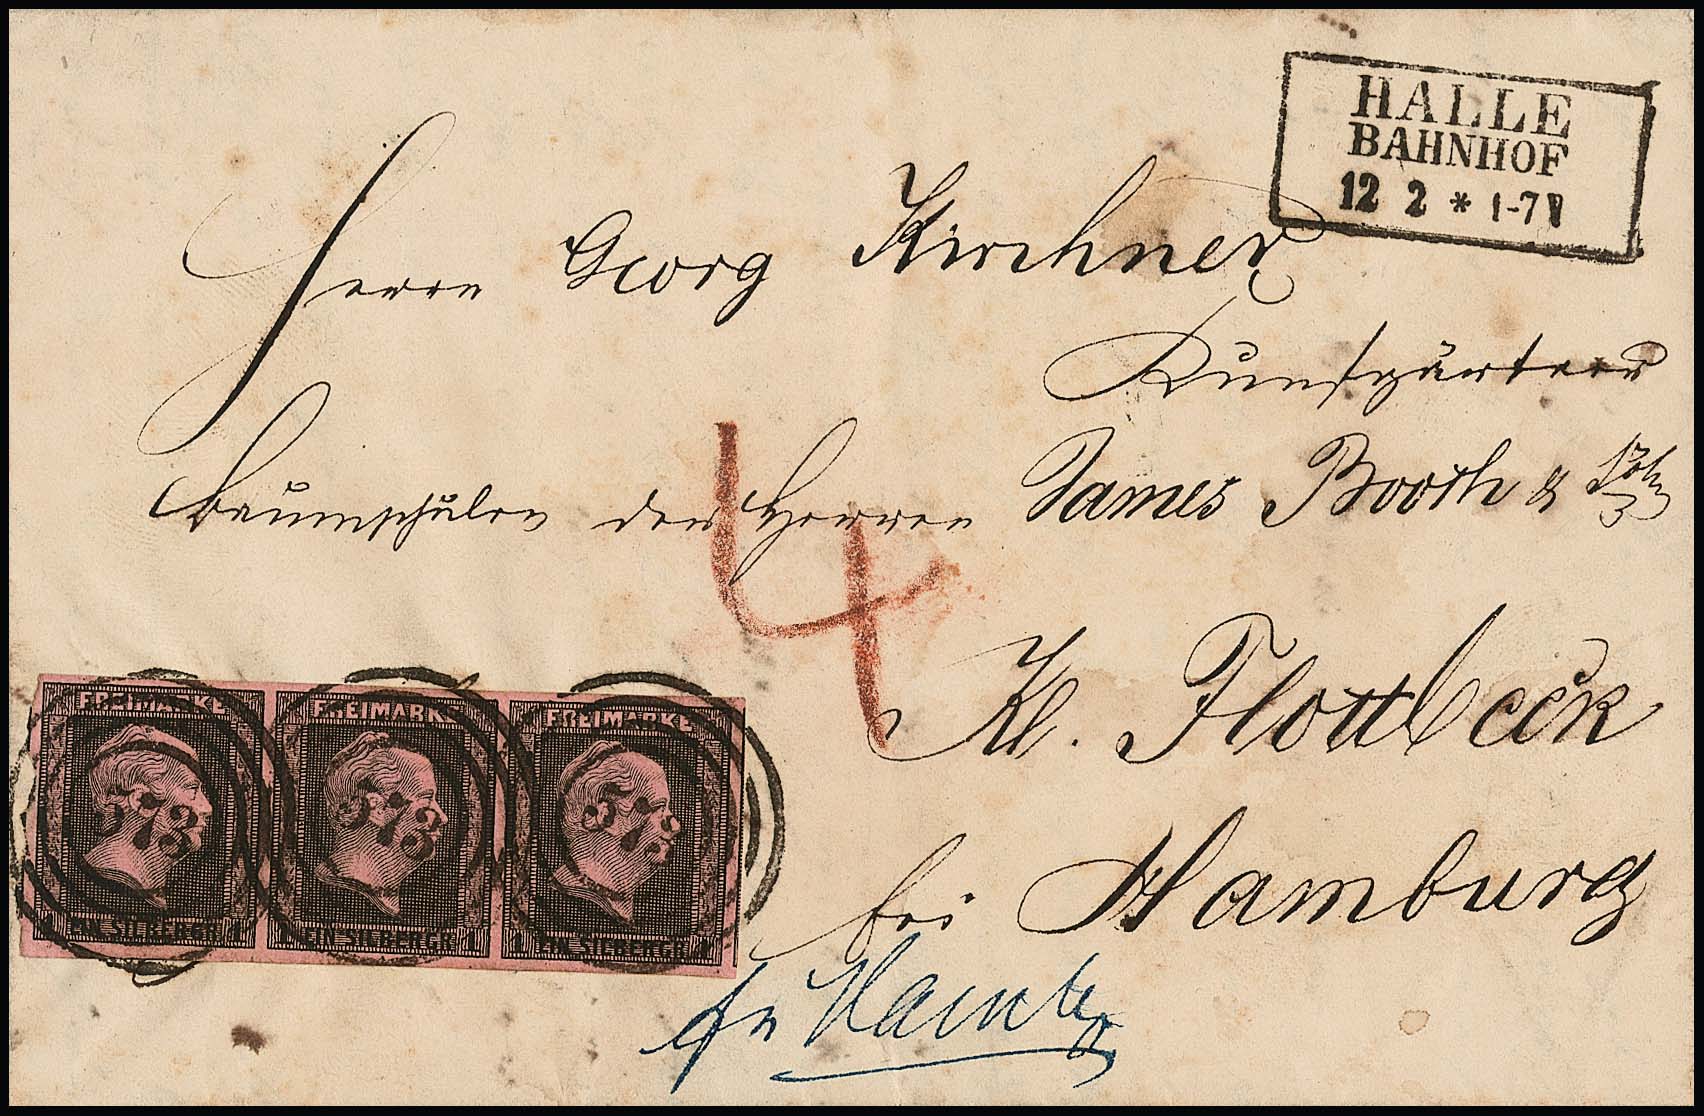 HALLE
BAHNHOF
12 2 * 1-7 V
Herrn Georg Kirchner
Kunstgärtner
Baumschulen der Herren James Booth & Söhne
4
Kl. Flottbeck
bei Hamburg
fr
FREIMARKE FREIMARKE FREIMARKE
573 573 573
1 EIN SILBERGR. 1 1 EIN SILBERGR. 1 1 EIN SILBERGR. 1